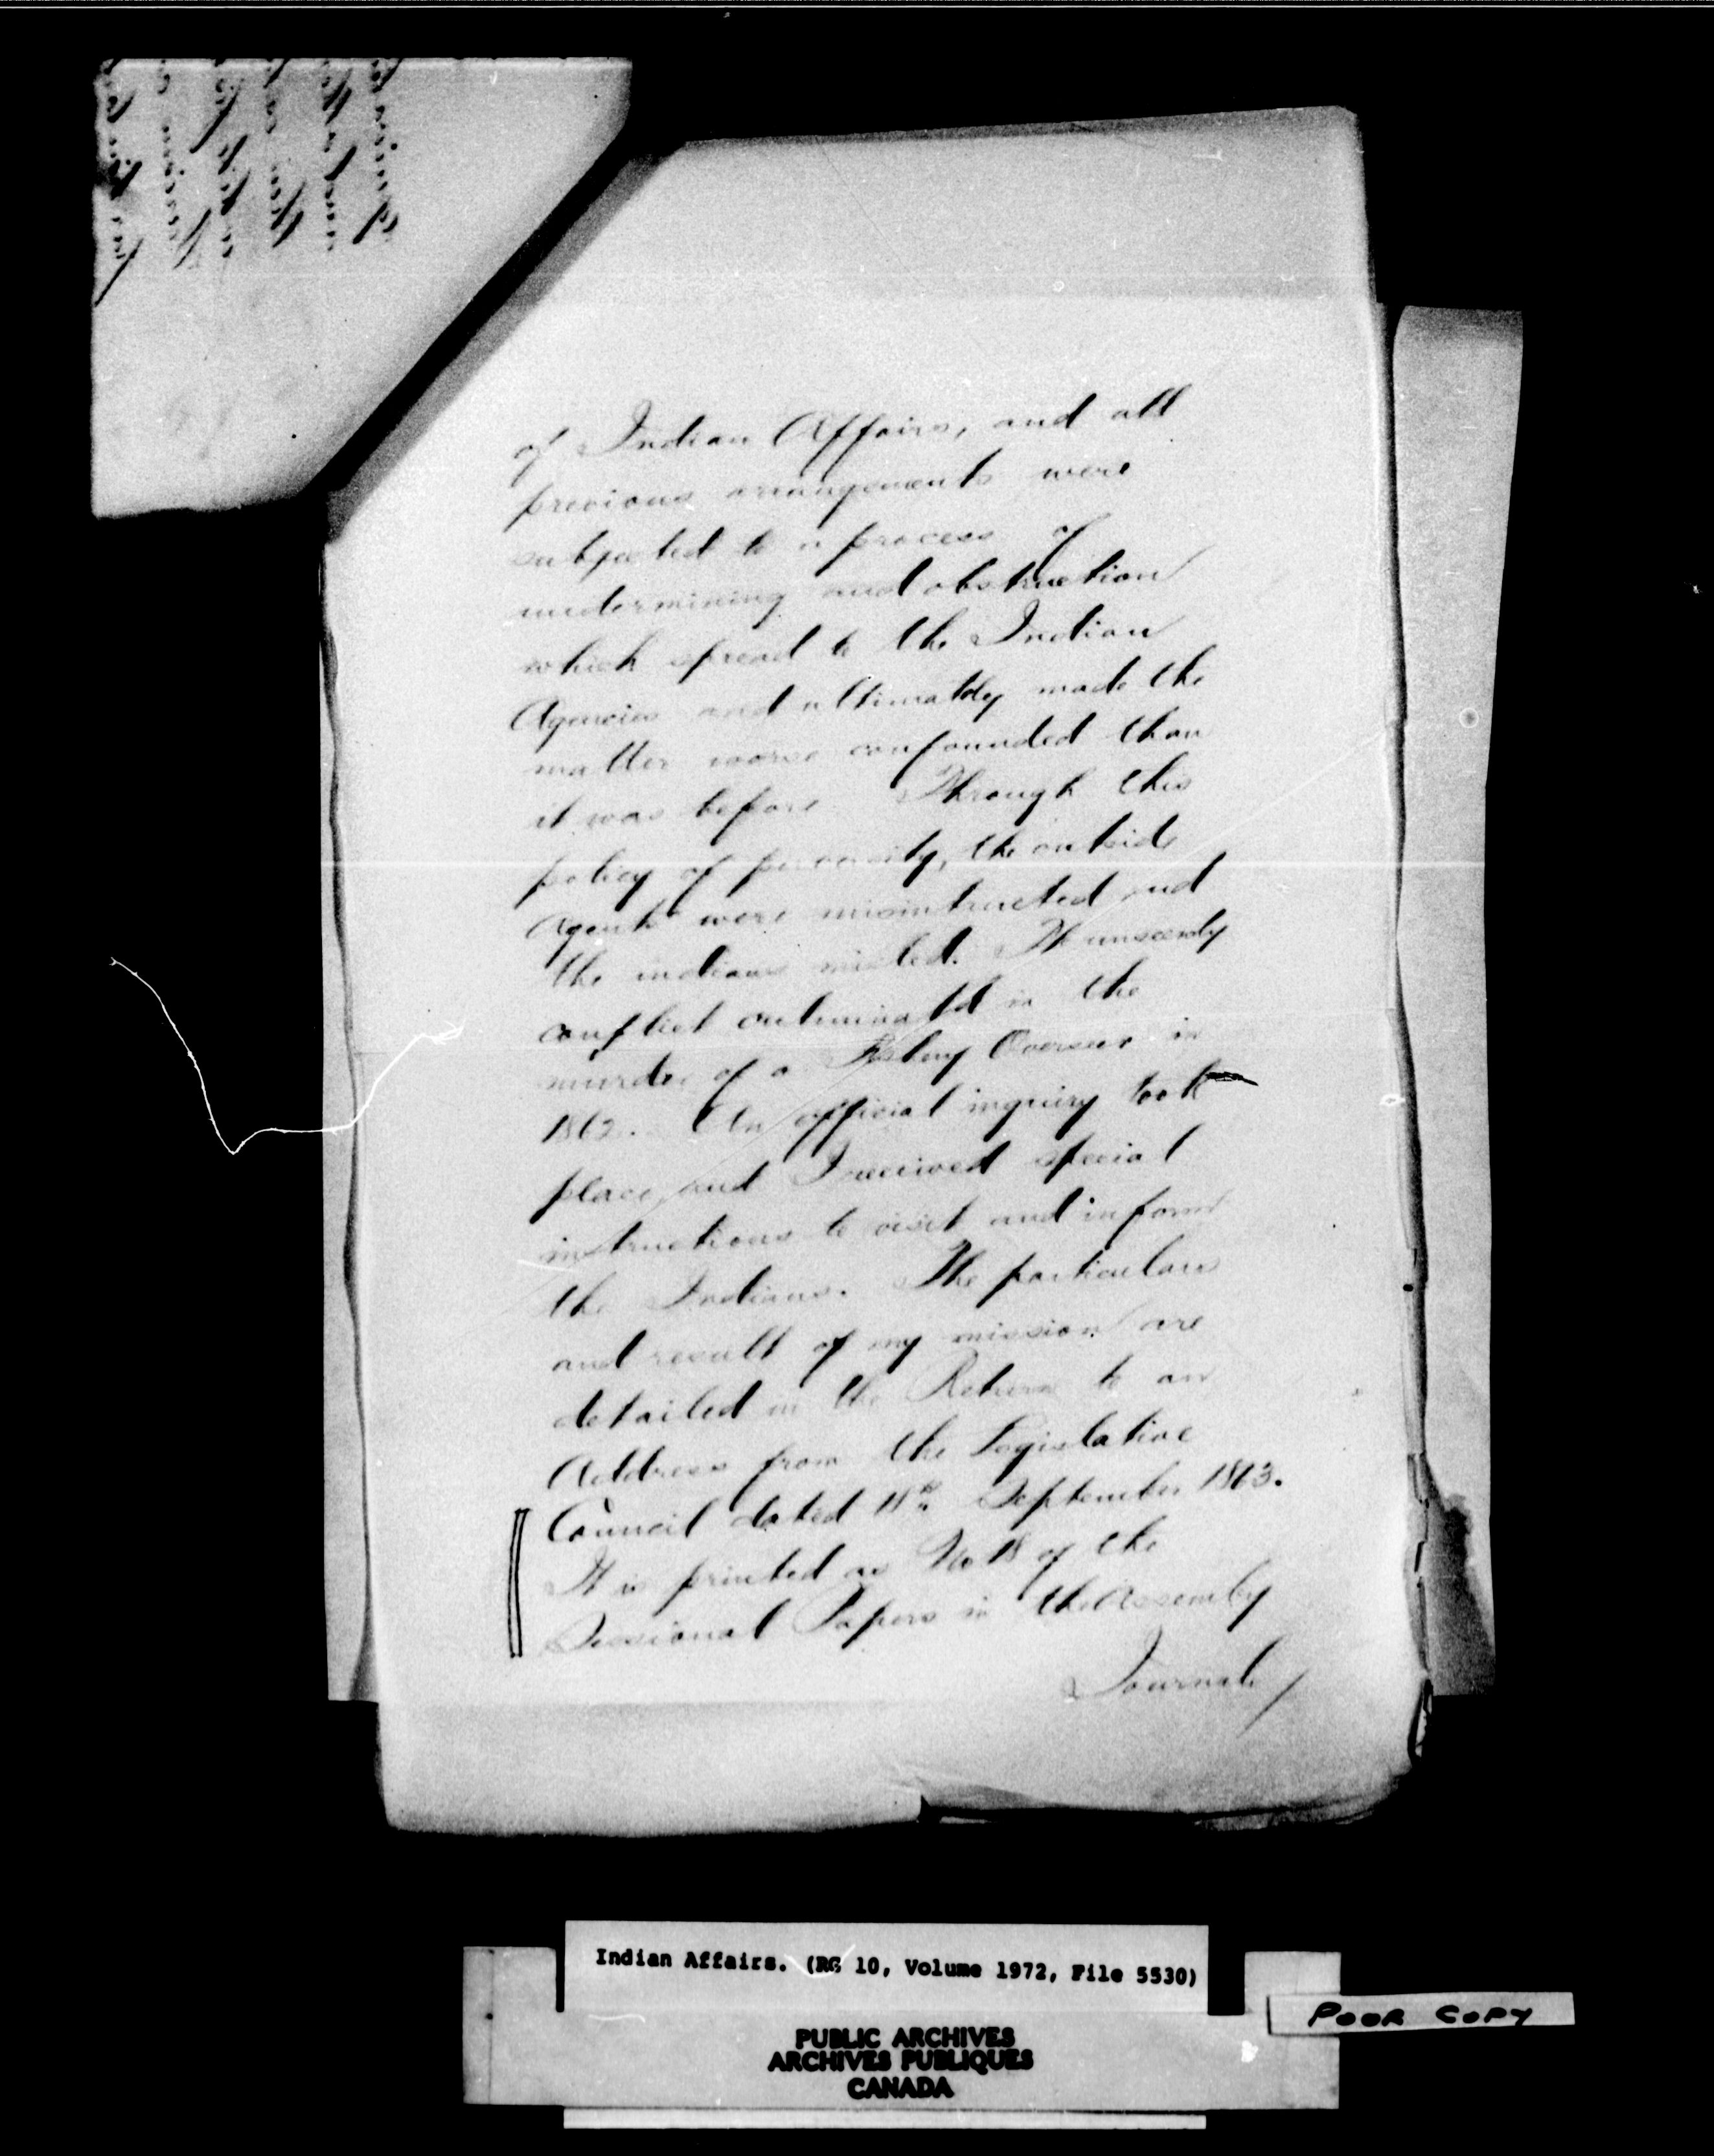 of Indian Affairs, and all
previous arrangements were
subjected to a process of
undermining and obstruction
which spread to the Indian
Agencies and ultimatly made the
matter worse confounded than
it was before Through this
policy of perversity, the outside
Agents were misintructed and
the indians misled. The unseemly
conflict culminated in the
murder of a Fishery Overseer in
1862. An official inquiry took
place, and I received special
instructions to visit and inform
the Indians. The particulars
and result of my mission are
detailed in the Return to an
Address from the Legislative
Council dated 18th September 1863.
It is printed as No 18 of the
Sessional Papers in the Assembly
Journals/
Indian Affairs. (RG 10, Volume 1972, File 5530)
POOR COPY
PUBLIC ARCHIVES
ARCHIVES PUBLIQUES
CANADA